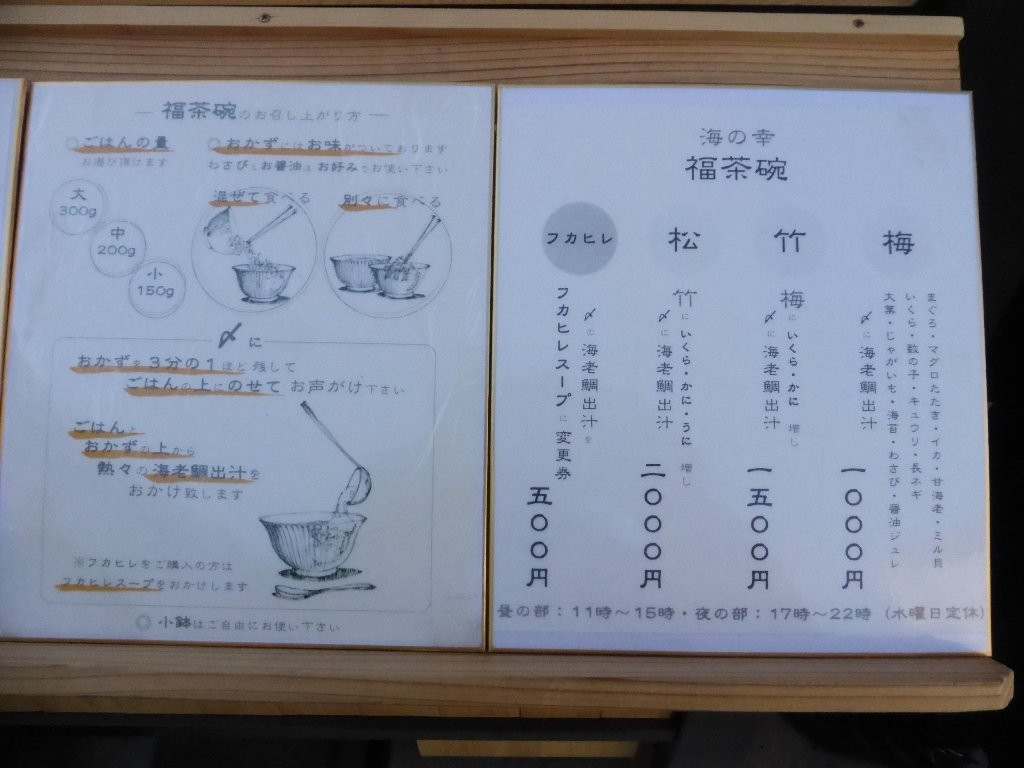 ― 福茶碗のお召し上がり方 ―
○ごはんの量
お選び頂けます
○おかずにはお味がついております
わさびとお醤油はお好みでお使い下さい
大
300g
中
200g
小
150g
混ぜて食べる
別々に食べる
〆に
おかずを3分の1ほど残して
ごはんの上にのせてお声がけ下さい
ごはんと
おかずの上から
熱々の海老鯛出汁を
おかけ致します
※フカヒレをご購入の方は
フカヒレスープをおかけします
◎小鉢はご自由にお使い下さい
海の幸
福茶碗
梅
まぐろ・マグロたたき・イカ・甘海老・ミル貝
いくら・数の子・キュウリ・長ネギ
大葉・じゃがいも・海苔・わさび・醤油ジュレ
〆に海老鯛出汁
一〇〇〇円
竹
梅にいくら・かに増し
〆に海老鯛出汁
一五〇〇円
松
竹にいくら・かに・うに増し
〆に海老鯛出汁
二〇〇〇円
フカヒレ
〆に海老鯛出汁を
フカヒレスープに変更券
五〇〇円
昼の部：11時～15時・夜の部：17時～22時（水曜日定休）